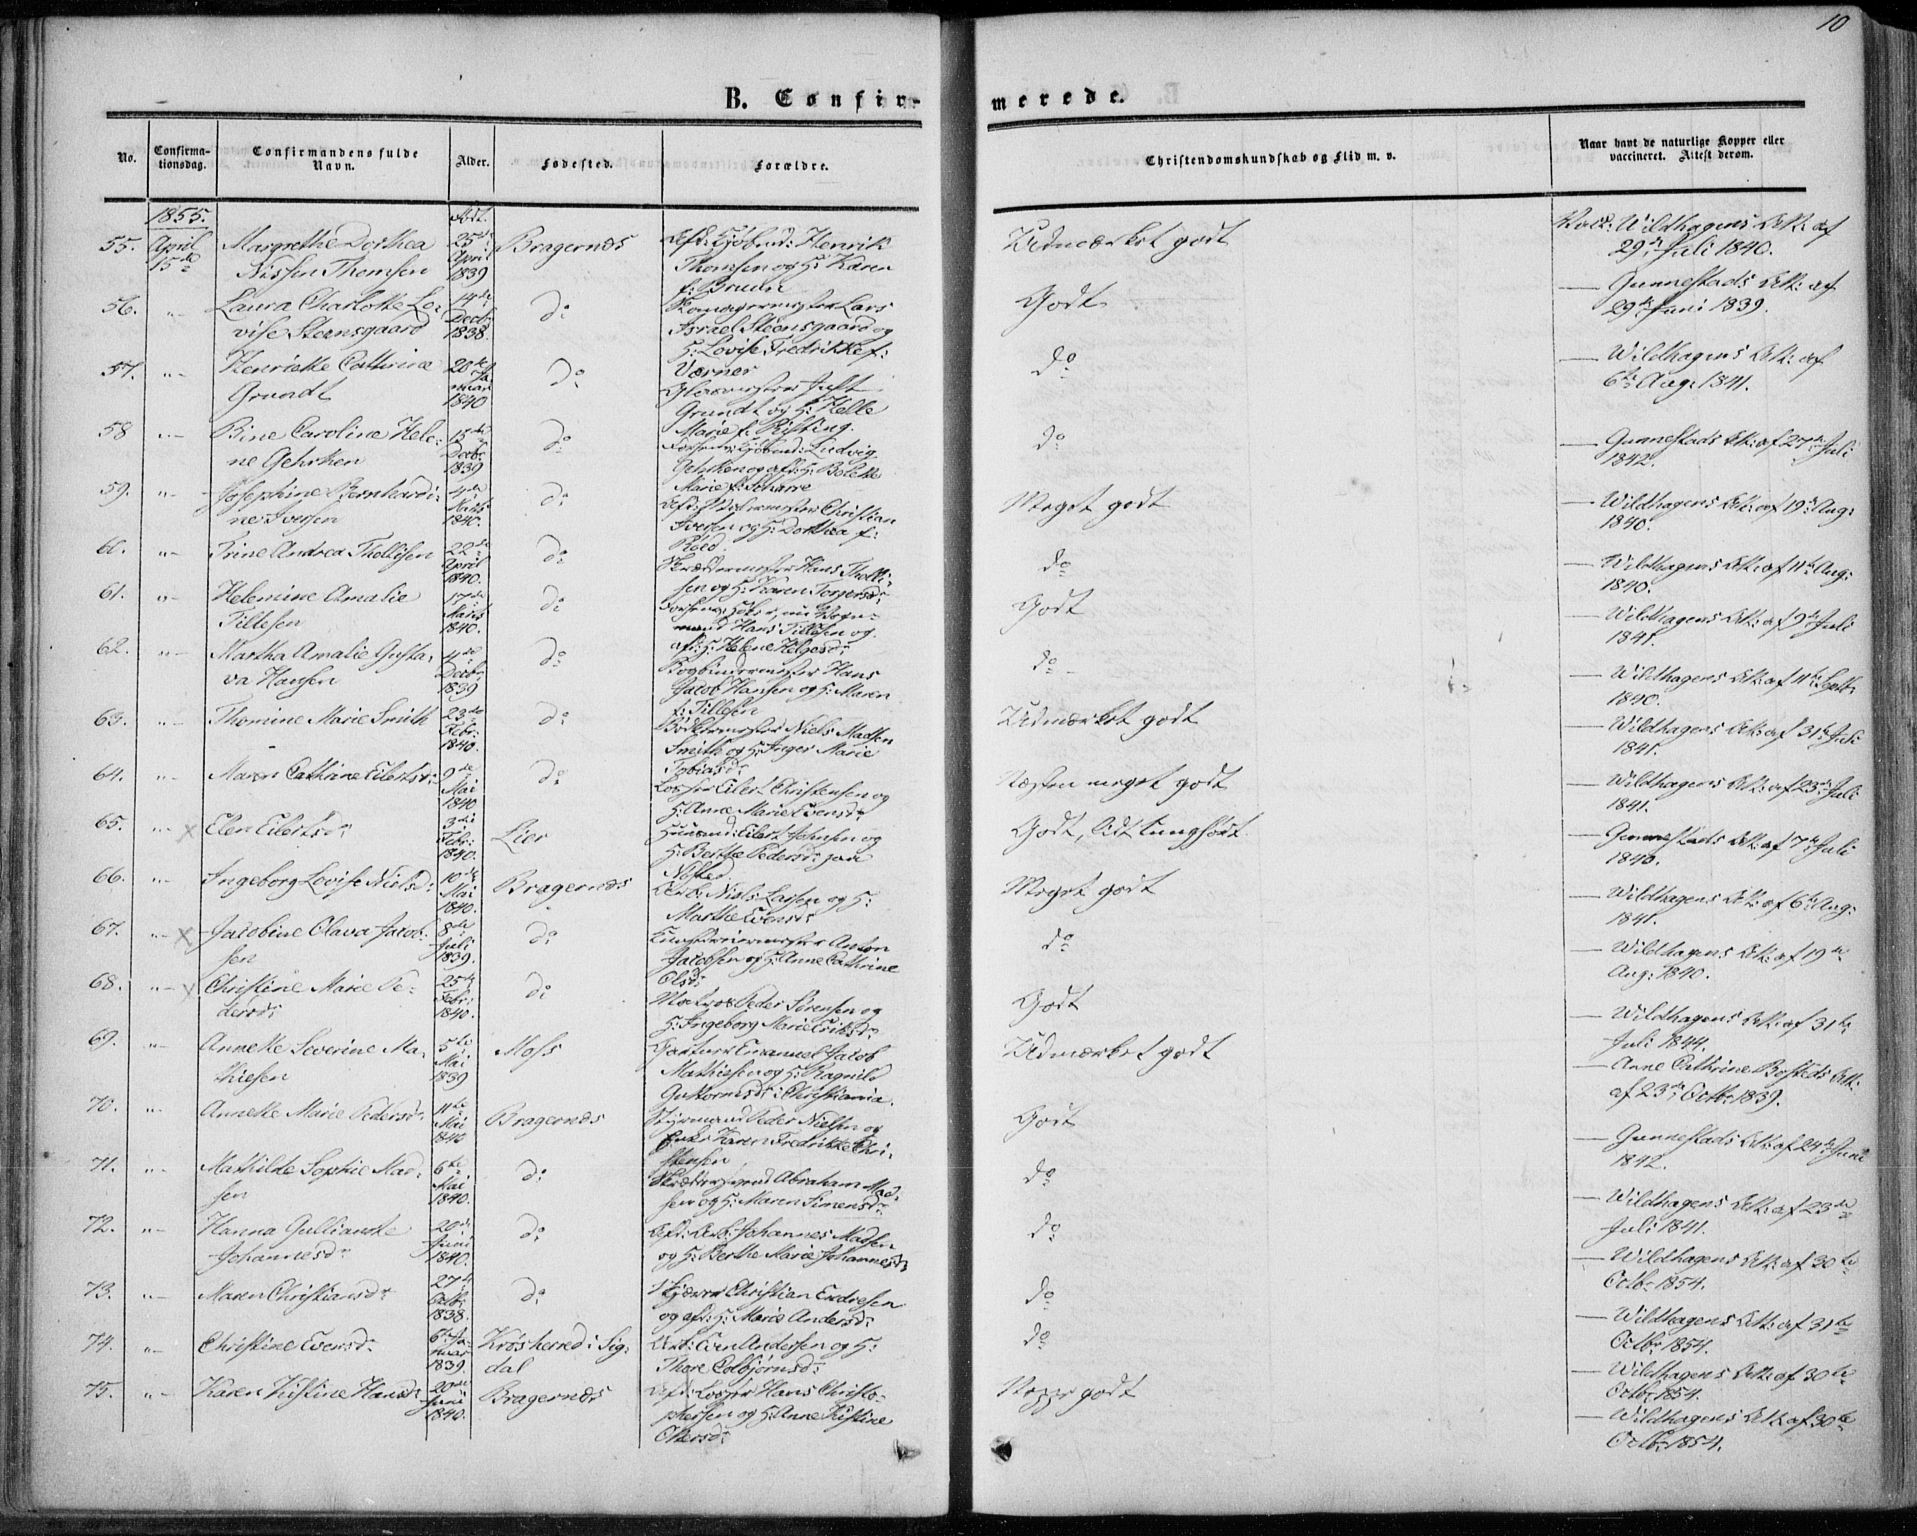 10
B. Confir-
merede.
No.
Confirma-
tionsdag.
Confirmandens fulde
Navn.
Alder.
Fødested.
Forældre.
Christendomskundskab og Flid m. v.
Naar havt de naturlige Kopper eller
vaccineret. Attest derom.
1855.
55. April 15de Margrethe Dorthea
Nissen Thomsen
25de April 1839
Bragernæs
Henrik
Thomsen og H: Karen
f: Bruun
Udmærket godt
Wildhagens Att: af
29de Juli 1840.
56. "- Laura Charlotte Lo-
vise Steensgaard
14de Decbr 1838.
do
Lars
Israel Steensgaard og
H: Lovise Fredrikke f:
Værner
Godt
Gunnestads Att: af
29de Juni 1839.
57. "- Henriette Cathrine
Grundt
20de Januar 1840
do
Glarmester Just
Grundt og H: Helle
Marie f. Risting.
do
— Wildhagens Att: af
6te Aug: 1841.
58 "- Bine Caroline Hele-
ne Gehrken
15de Decbr 1839
do
Ludvig
Gehrken og afd: H: Bolette
Marie f: Scharre
do
— Gunnestads Att: af 27de Juli
1842.
59. "- Josephine Bernhardi-
ne Iversen
4de Marts 1840.
do
Christian
Iversen og H: Dorthea f:
Röed.
Meget godt
— Wildhagens Att: af 19de Aug:
1840.
60. "- Trine Andrea Thollesen
22de April 1840.
do
Skræddermester Hans Tholle-
sen og H: Karen Torgersdr
do
— Wildhagens Att: af 11te Aug:
1840.
61. "- Helemine Amalie
Tillesen
17de Marts 1840.
do
mand Hans Tillesen og
afd: H: Helene Helgesdr
Godt
— Wildhagens Att: af 9de Juli
1841.
62. "- Martha Amalie Gusta-
va Hansen
4de Decbr 1839
do
Bogbindermester Hans
Jacob Hansen og H: Maren
f: Tillesen
do
— Wildhagens Att: af 11te Septb:
1840.
63. "- Thomine Marie Smith
23de Febr: 1840.
do
Bödkermester Niels Madsen
Smith og H: Inger Marie
Tobiasdr
Udmærket godt
— Wildhagens Att: af 31te Juli
1841.
64. "- Maren Cathrine Eilertsdr
9de Mai 1840
do
Eilert Christensen og
H: Anne Marie Evensdr
Næsten meget godt
— Wildhagens Att: af 23de Juli
1841.
65. "- x Elen Eilertsdr
3die Febr: 1840.
Lier
Husmd: Eilert Johnsen og
H: Berthe Pedersdr
Godt, lidt tunghört.
— Gunnestads Att: af 7de Juli
1840.
66. "- Ingeborg Lovise Nielsdr
10de Mai 1840.
Bragernæs
Arb: Niels Larsen og H:
Marthe Evensdr
Meget godt
— Wildhagens Att: af 6te Aug:
1841.
67. "- x Jacobine Olava Jacob-
sen
8de Juli 1839.
do
Anton
Jacobsen og H: Anne Cathrine
Olsdr
do
— Wildhagens Att: af 19de
Aug: 1840.
68. "- x Christine Marie Pe-
dersdr
25de Febr: 1840.
do
Matros Peder Sörensen og
H: Ingeborg Marie Eriksdr
Godt
— Wildhagens Att: af 31te
Juli 1844.
69. "- Annette Severine Ma-
thiesen
5te Mai 1839
Moss
Gartner Emanuel Jacob
Mathiesen og H: Ragnild
Guttormsdr i Christiania.
Udmærket godt
— Anne Cathrine Bosteds Att:
af 23de Octbr 1839.
70. "- Annette Marie Pedersdr
11te Mai 1840
Bragernæs
Styrmand Peder Nielsen og
Enke Karen Fredrikke Chri-
stensen
Godt
— Gunnestads Att: af 24de Juni
1842.
71. "- Mathilde Sophie Mad-
sen
6te Mai 1840.
do
Skræddersvend Abraham Mad-
sen og H: Maren Simensdr
do
— Wildhagens Att: af 23de
Juli 1841.
72. "- Hanna Gulliante
Johannesdr
20de Juni 1840.
do
Afd: Arb: Johannes Madsen
og H: Berthe Marie Johannesdr
do
— Wildhagens Att: af 30te
Octbr 1854.
73. "- Maren Christiansdr
27de Octbr 1838.
do
Christian Endresen
og afd: H: Marie Andersdr
do
— Wildhagens Att: af 31te
Octbr 1854.
74. "- Christine Evensdr
6te Januar 1839.
Krösherred i Sig-
dal
Arb: Even Andersen og H:
Thore Colbjörnsdr
do
— Wildhagens Att: af 30te
Octbr 1854.
75. "- Karen Kistine Hansdr
20de Juni 1840.
Bragernæs
Afd: Hans Christo-
phersen og H: Anne Kistine
Ottersdr
Neppe godt
— Wildhagens Att: af 30te
Octbr 1854.